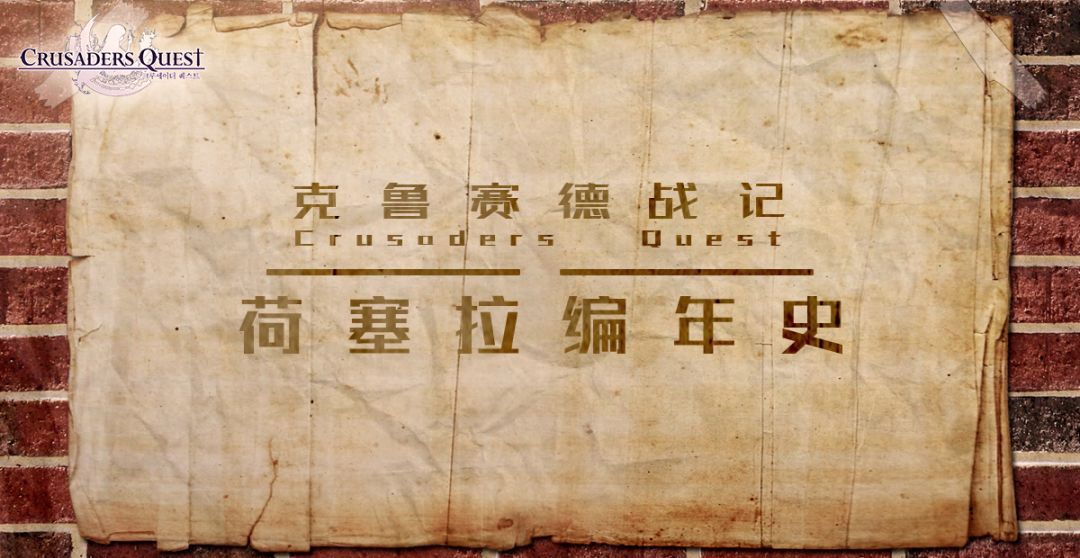 CRUSADERS QUEST
크루세이더 퀘스트
克鲁赛德战记
Crusaders Quest
荷塞拉编年史